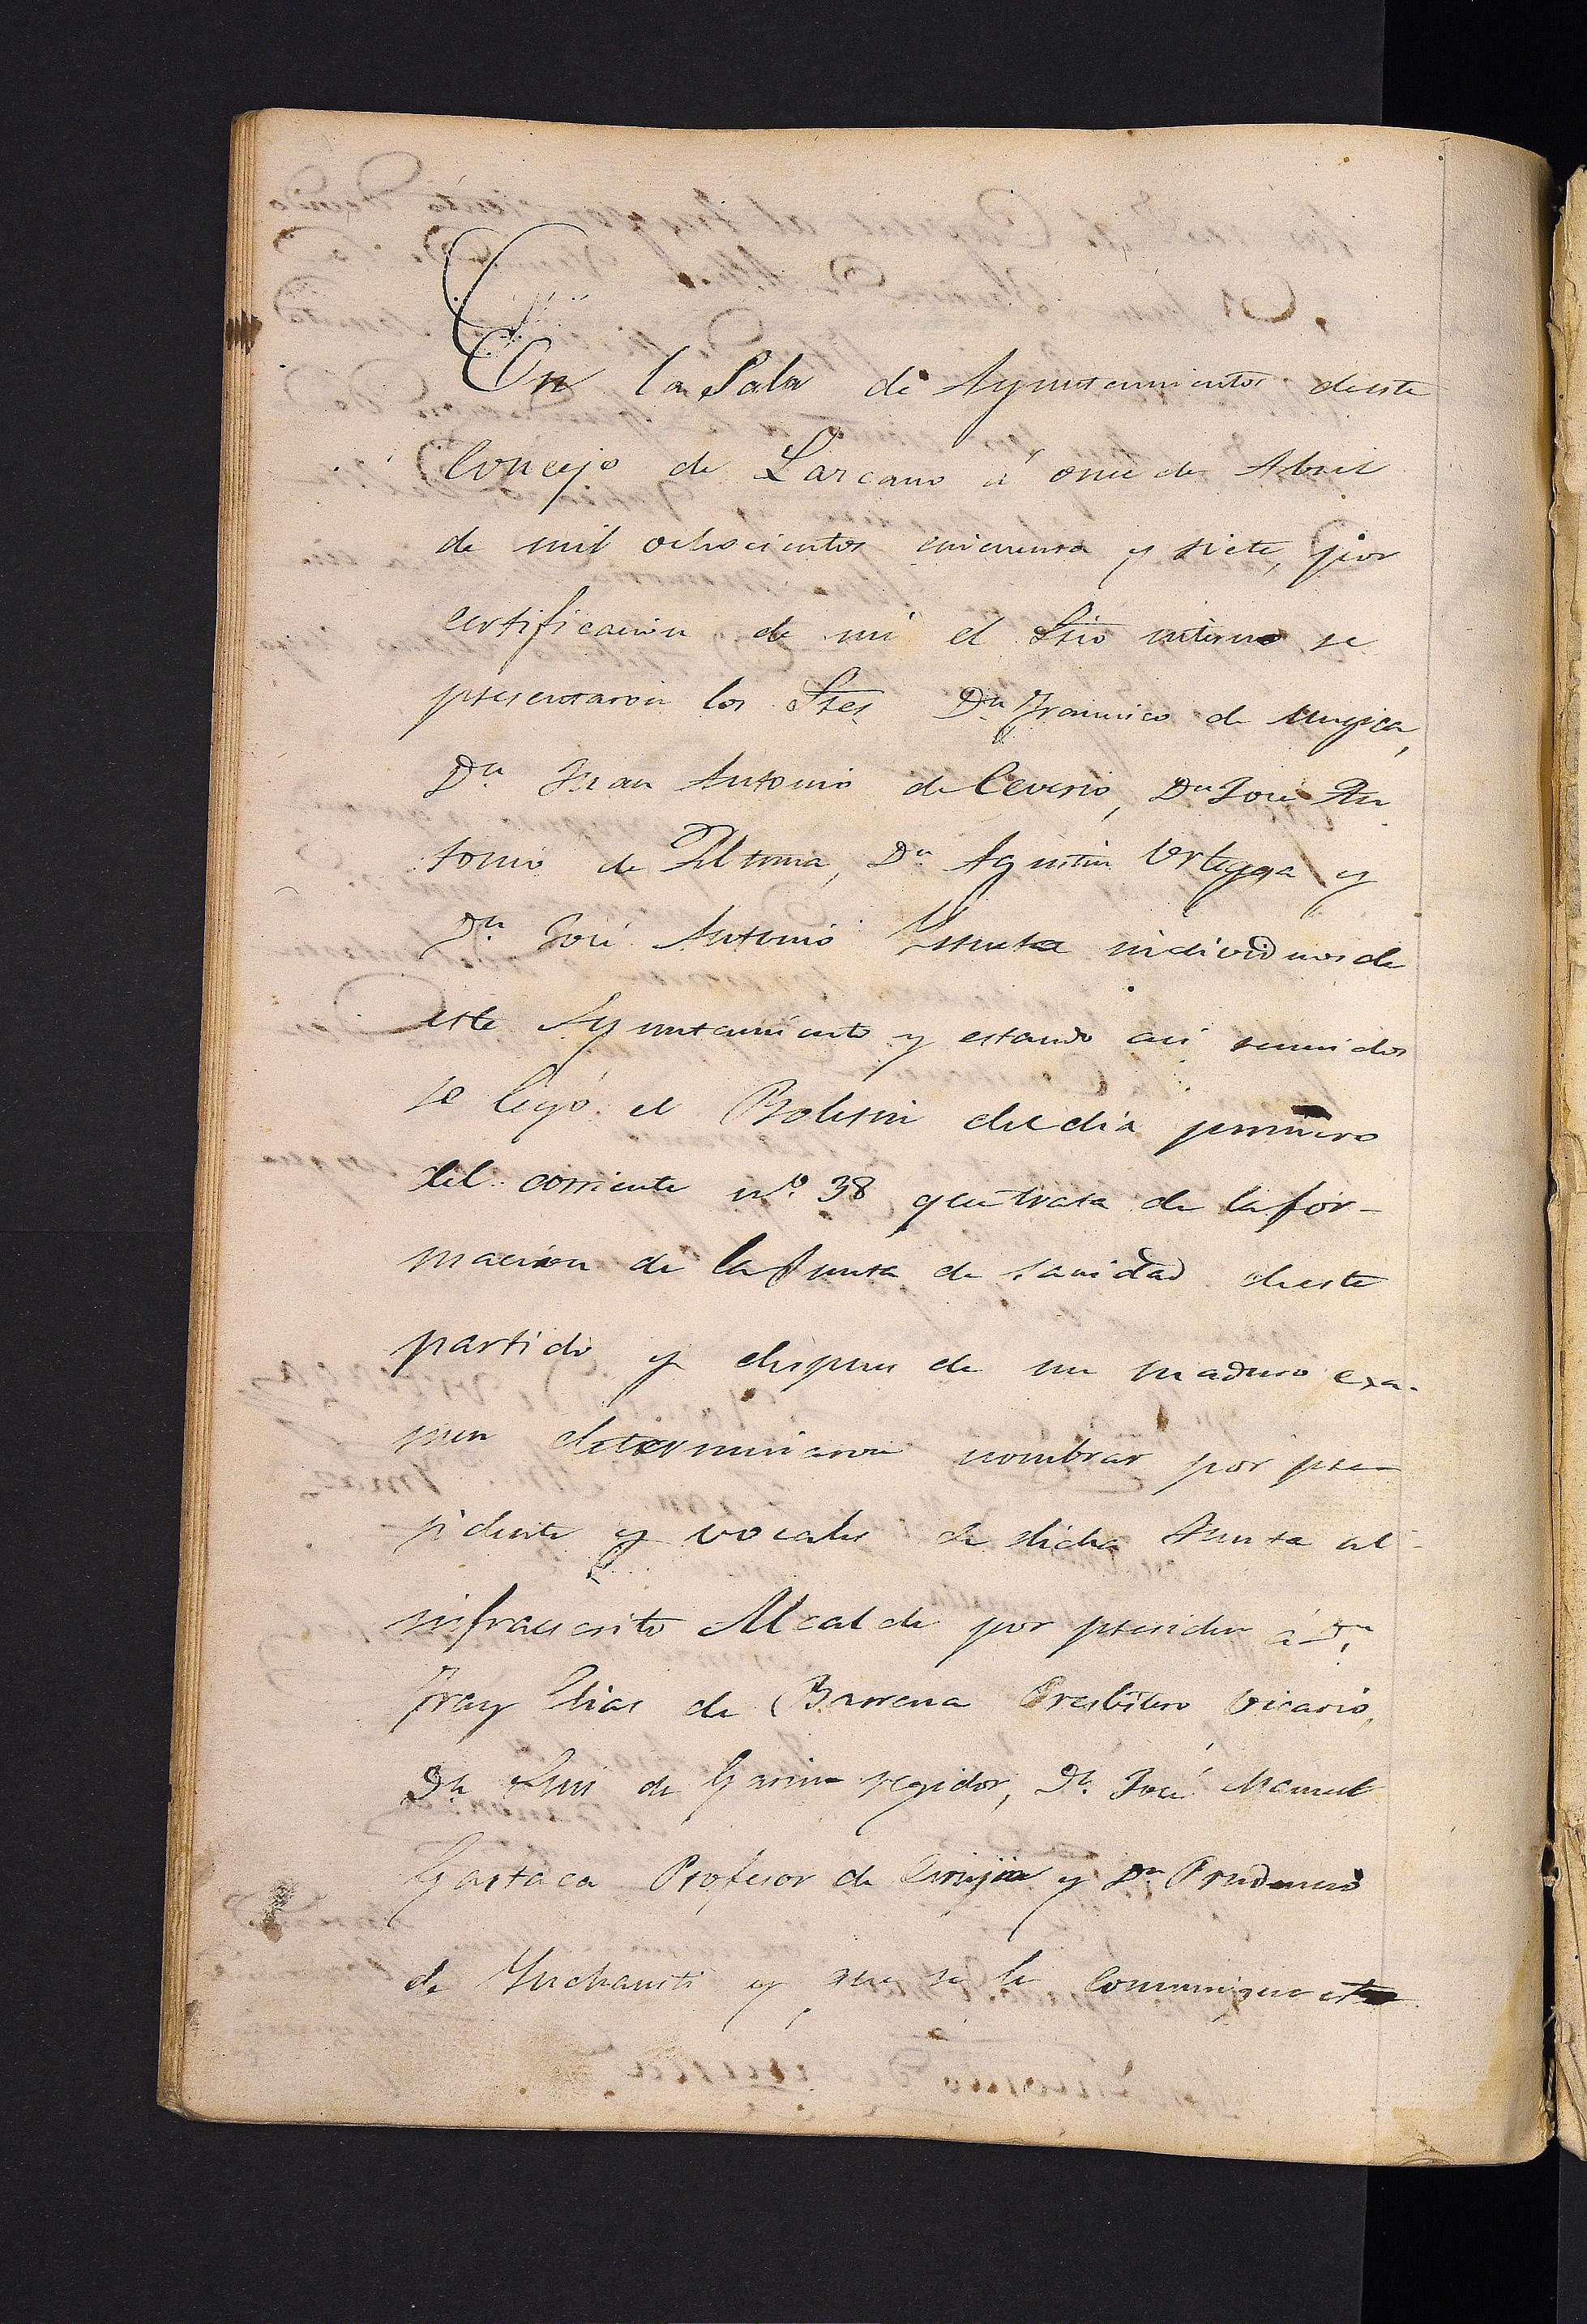 En la Sala de Ayuntamientos deeste
Concejo de Lazcano á once de Abril
de mil ochocientos cincuenta y siete, por
certificacion de mi el Srio interino se
presentaron los Sres Dn Francisco de Mugica,
Dn. Juan Antonio de Ceverio, Dn José An
tonio de Galtona, Dn Agustin Urteaga y
Dn José Antonio individuos de
este Ayuntamiento y estando asi reunidos
se leyó el Boletin del dia primero
del corriente no. 38 que trata de la for-
macion de la Junta de Sanidad deeste
partido y despues de un maduro exa-
men determinaron nombrar por pre-
sidente y vocales de dicha Junta al
infraescrito Alcalde por presider á Dn
Fray Elias de Barrena Presbitero Vicario,
Dn Luis de Garin regidor, Dn. José Manuel
Gastaca Profesor de Cirujia y Dn Prudencio
de Inchausti y que se le comunique